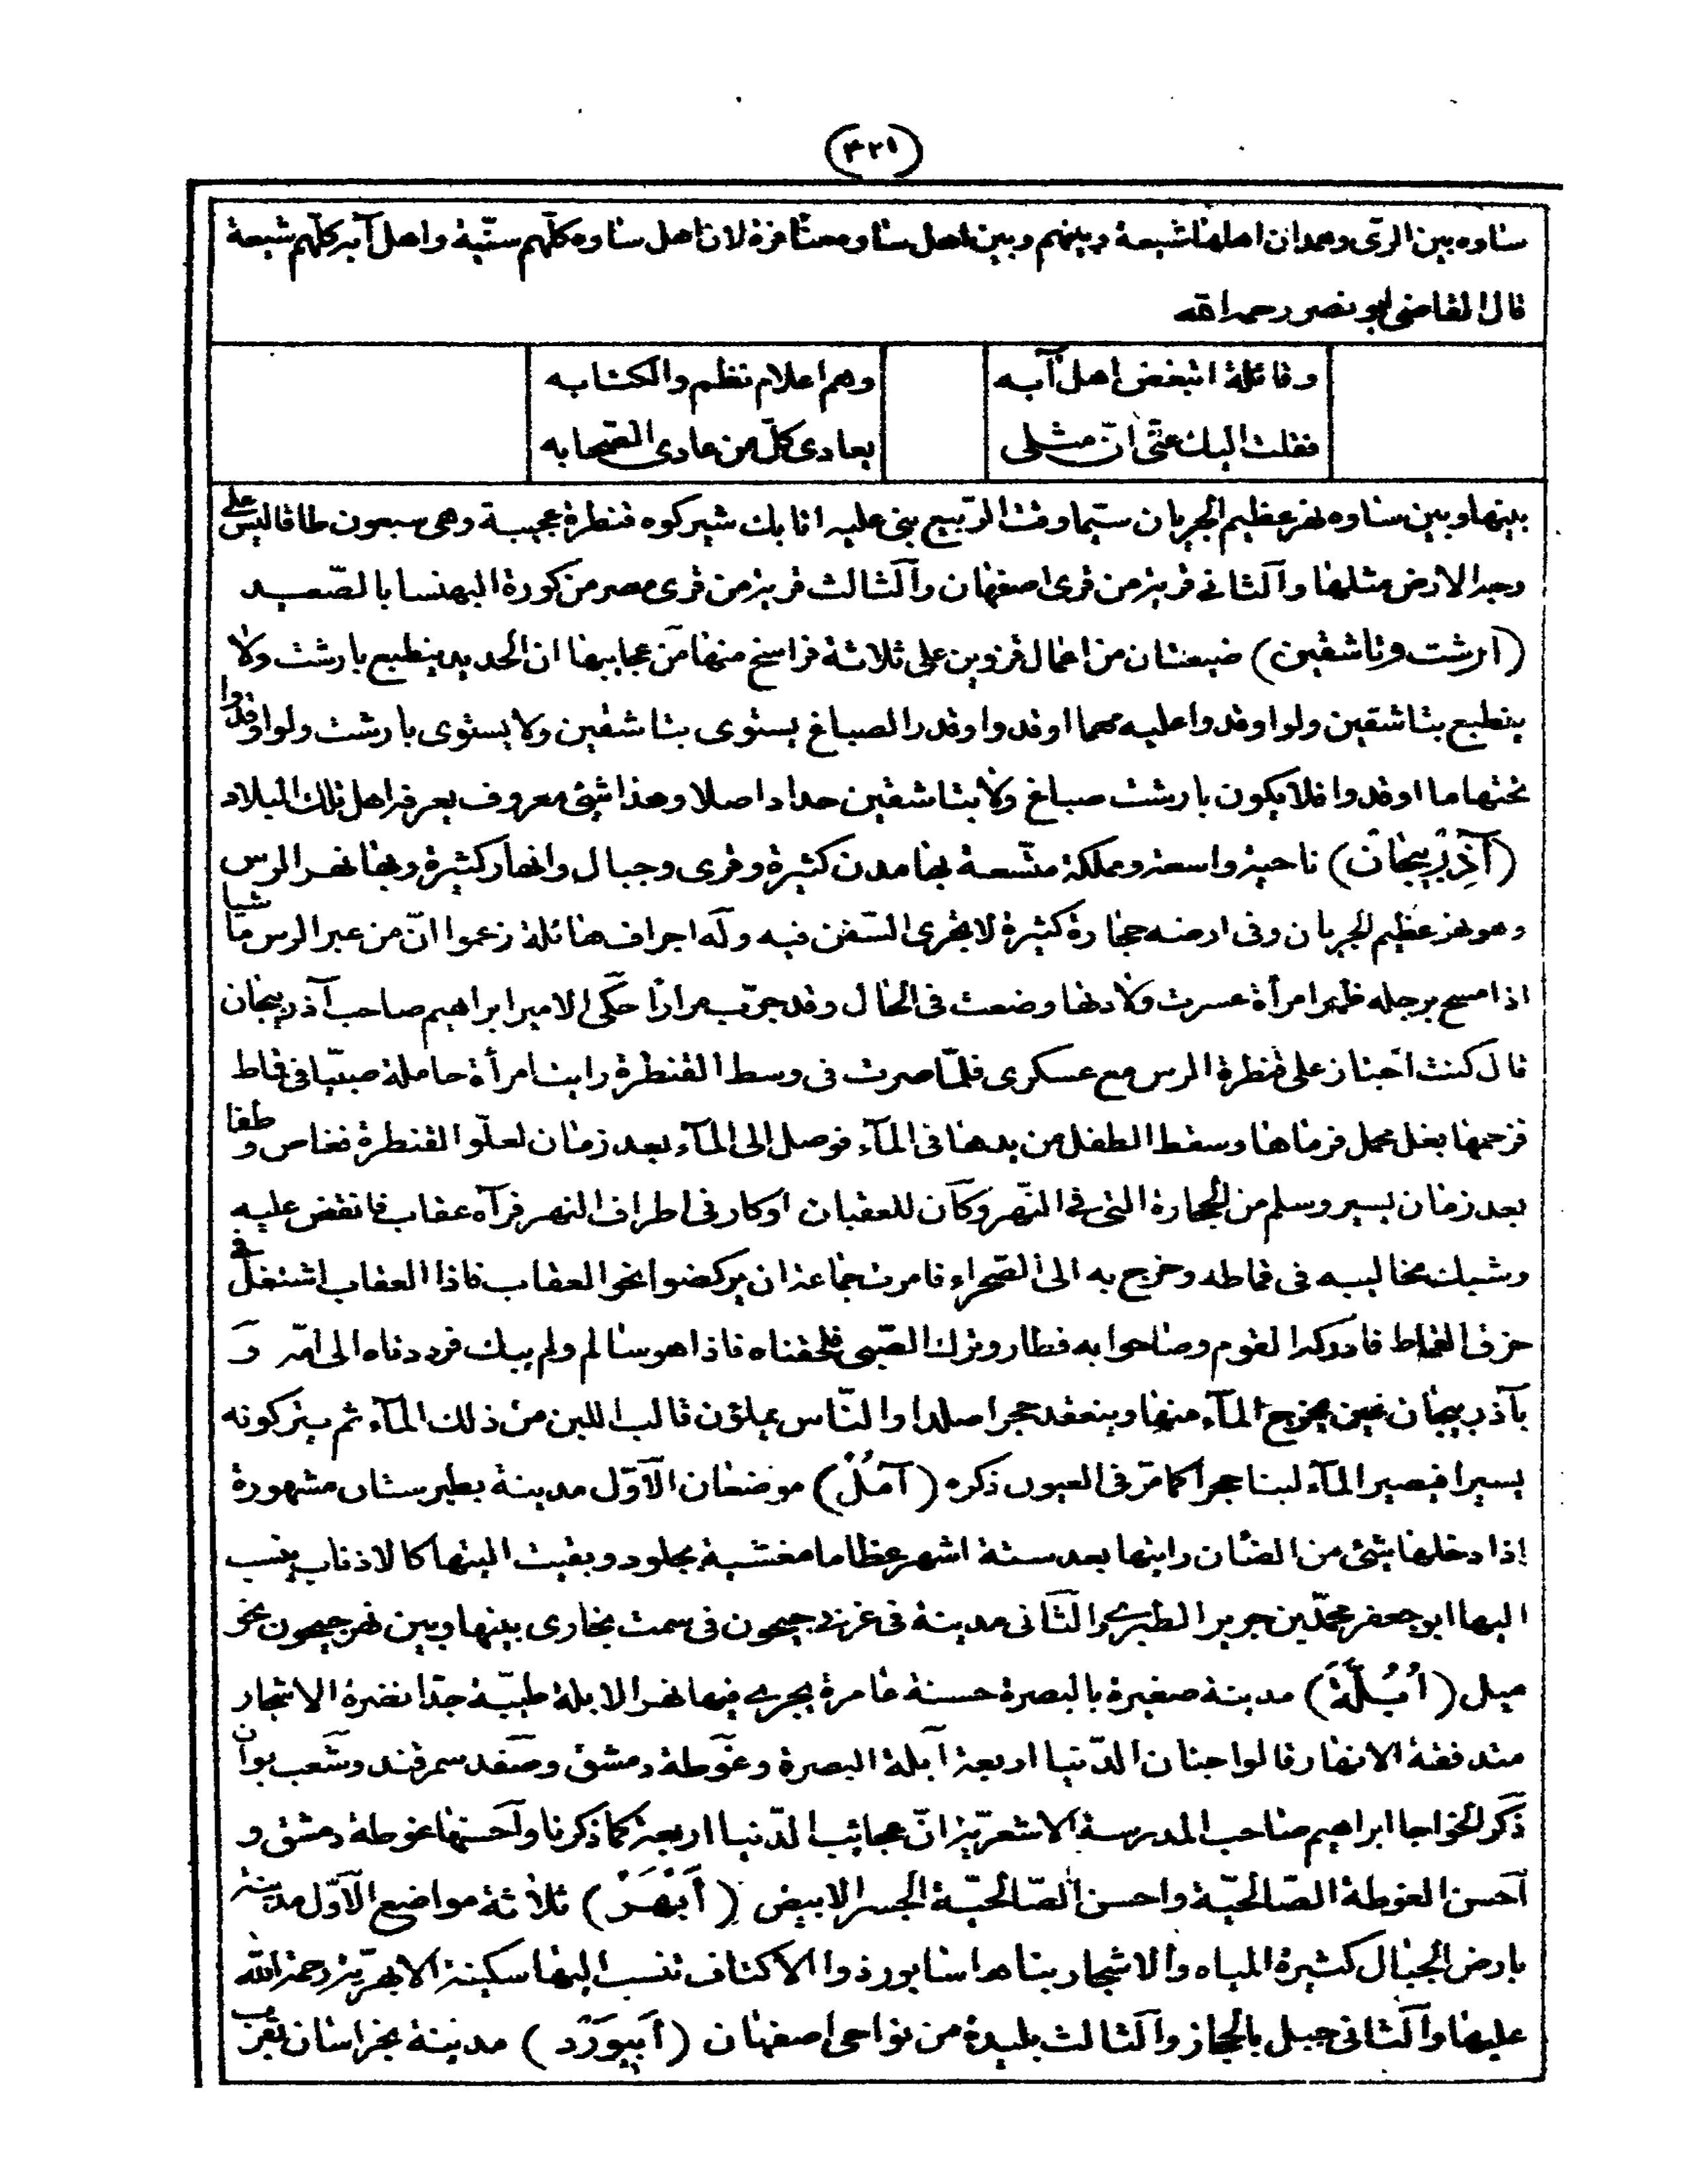 (٣٢١)
ساوه بين الرى وهمدان اهلها شيعة وبينهم وبين اهل ساوه منافرة لان اهل ساوه كلّهم سنّية واهل آبه كلّهم شيعة
قال القاضى ابو نصر رحمه الله
وقائلة اتبغض اهل آبه وهم اعلام نظم والكتابه
فقلت اليك عنّى انّ مثلى يعادى كلّ من عادى الصّحابه
بينها وبين ساوه نهر عظيم الجريان سيّما وقت الرّبيع بنى عليه اتابك شيركوه قنطرة عجيبة وهى سبعون طاقا ليس على
وجه الارض مثلها والثانى قرية من قرى اصفهان والثالث قرية من قرى مصر من كورة البهنسا بالصّعيد
(ارشت وناشقين) ضيعتان من اعمال قزوين على ثلاثة فراسخ منها من عجايبها ان الحديد ينطبع بارشت ولا
ينطبع بتاشقين ولو اوقدوا عليه مهما اوقدوا وقدر الصباغ يستوى بتاشقين ولا يستوى بارشت ولو اوقدوا
تحتها ما اوقدوا فلا يكون بارشت صباغ ولا بتاشقين حداد اصلا وهذا شئ معروف يعرفه اهل تلك البلاد
(آذِرْبيجان) ناحية واسعة ومملكة متّسعة بها مدن كثيرة وقرى وجبال وانهار كثيرة وبها نهر الرس
وهو نهر عظيم الجريان وفى ارضه حجارة كثيرة لا تجرى السّفن فيه وله اجراف هائلة زعموا انّ من عبر الرس ماشيا
اذا مسح برجله ظهر امرأة عسرت ولادتها وضعت فى الحال وقد جرّب مرارا حكى الامير ابراهيم صاحب آذربيجان
قال كنت اجتاز على قنطرة الرس مع عسكرى فلمّا صرت فى وسط القنطرة رايت امرأة حاملة صبيّا فى قماط
فزحمها بغل محمل فرماها وسقط الطفل من يدها فى المآء فوصل الى المآء بعد زمان لعلّو القنطرة فغاص وطفا
بعد زمان يسير وسلم من الحجارة التى فى النّهر وكان للعقبان اوكار فى اطراف النهر فرآه عقاب فانقض عليه
وشبك مخاليبه فى قماطه وخرج به الى الصّحراء فامرت جماعة ان يركضوا نحو العقاب فاذا العقاب اشتغل فى
خرق القماط فادركه القوم وصاحوا به فطار وترك الصّبى فلحقناه فاذا هو سالم ولم يبك فرددناه الى امّه و
بآذربيجان عين يخرج المآء منها وينعقد حجرا صلدا والنّاس يملؤن قالب اللبن من ذلك المآء ثم يتركونه
يسيرا فيصير المآء لبنا حجرا كما مرّ فى العيون ذكره (آمُلُ) موضعان الاوّل مدينة بطبرستان مشهورة
إذا دخلها شئ من الضان رايتها بعد ستة اشهر عظاما مغشية بجلود وبقيت اليتها كالاذناب ينسب
اليها ابو جعفر محمّد بن جرير الطبرى والثّانى مدينة فى غربى جيحون فى سمت بخارى بينها وبين نهر جيحون نحو
ميل (اُبُلَّة) مدينة صغيرة بالبصرة حسنة عامرة يجرى فيها نهر الابلة طيّبة جدّا نضرة الاشجار
متدفقة الانهار قالوا جنان الدّنيا اربعة ابلة البصرة وغوطة دمشق وصغد سمرقند وشعب بوان
ذكر الخواجا ابراهيم صاحب المدرسة الاشعريّة انّ عجائب الدّنيا اربعة كما ذكرنا واحسنها غوطة دمشق و
احسن الغوطة الصّالحيّة واحسن الصّالحيّة الجسر الابيض (أَبْهَرْ) ثلاثة مواضع الاوّل مدينة
بارض الجبال كثيرة المياه والاشجار بناها سابور ذو الاكتاف تنسب اليها سكينة الابهريّة رحمة الله
عليها والثانى جبل بالحجاز والثالث بليدة من نواحى اصفهان (أَبيوَرْد) مدينة بخراسان بقرب